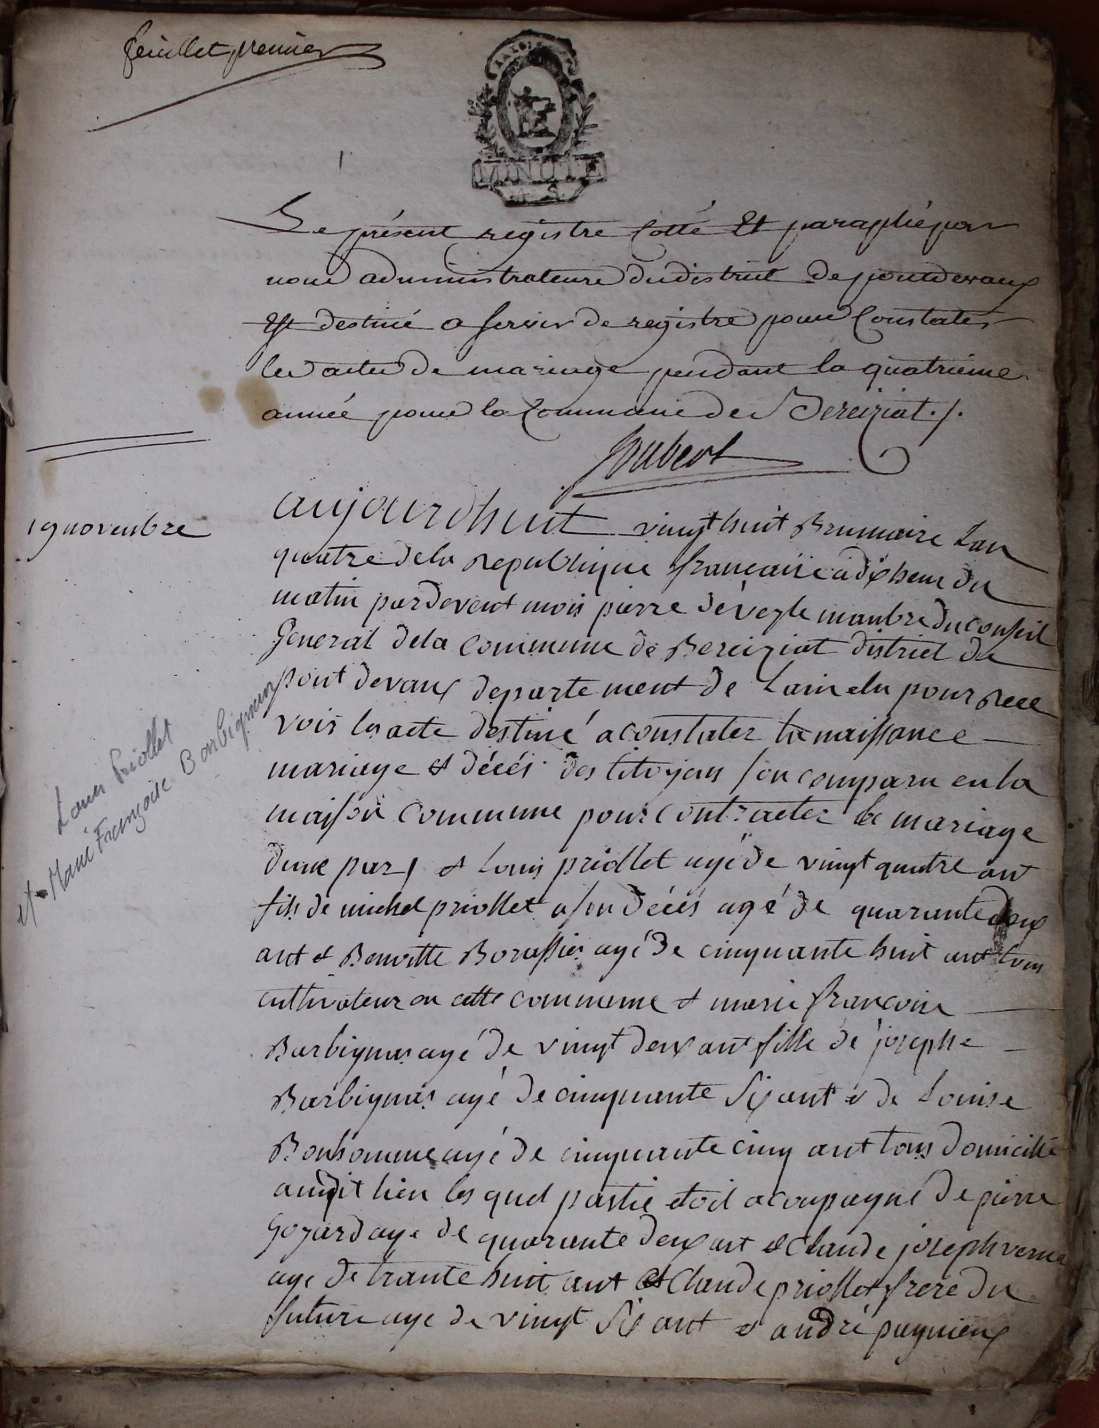 feuillet premier
MINUTE
Le présent registre Cotté Et paraphé par
nous administrateurs du district de pontdevaux
Est destiné a servir de registre pour Constater
les actes de mariage pendant la quatrieme
année pour la Commune de Bereiziat ./.
19 novembre
aujourdhuit vingt huit Brumaire Lan
quatre dela Republique francaise a dix heur du
matin pardevent mois pierre manbre du conseil
General dela commune de Bereiziat district de
pont devaux departement de Lain elu pour rece
voir les acte destiné a constater la naissance
mariage et décés des Citoyens son comparu en la
maison commune pour contracter le mariage
dune part et Louis priollet agé de vingt quatre ant
fils de michel priollet décés agé de quarante deux
ant et Benoitte Borassier agé de cinquante huit ant tous
cultivateur en cette commune et marie francoise
Barbignas agé de vingt deux ant fille de josephe
Barbignas agé de cinquante six ant et de Louise
Bonhomme agé de cinquante cinq ant tous domicilié
audit lieu les quel partie etoit acoupagné de pierre
Gozard age de quarante deux ant et Claude joseph verne
age de trante huit ant et Claude priollet frere du
future age de vingt six ant et andré pugnieux
Louis Priollet
et Marie Françoise Barbignas